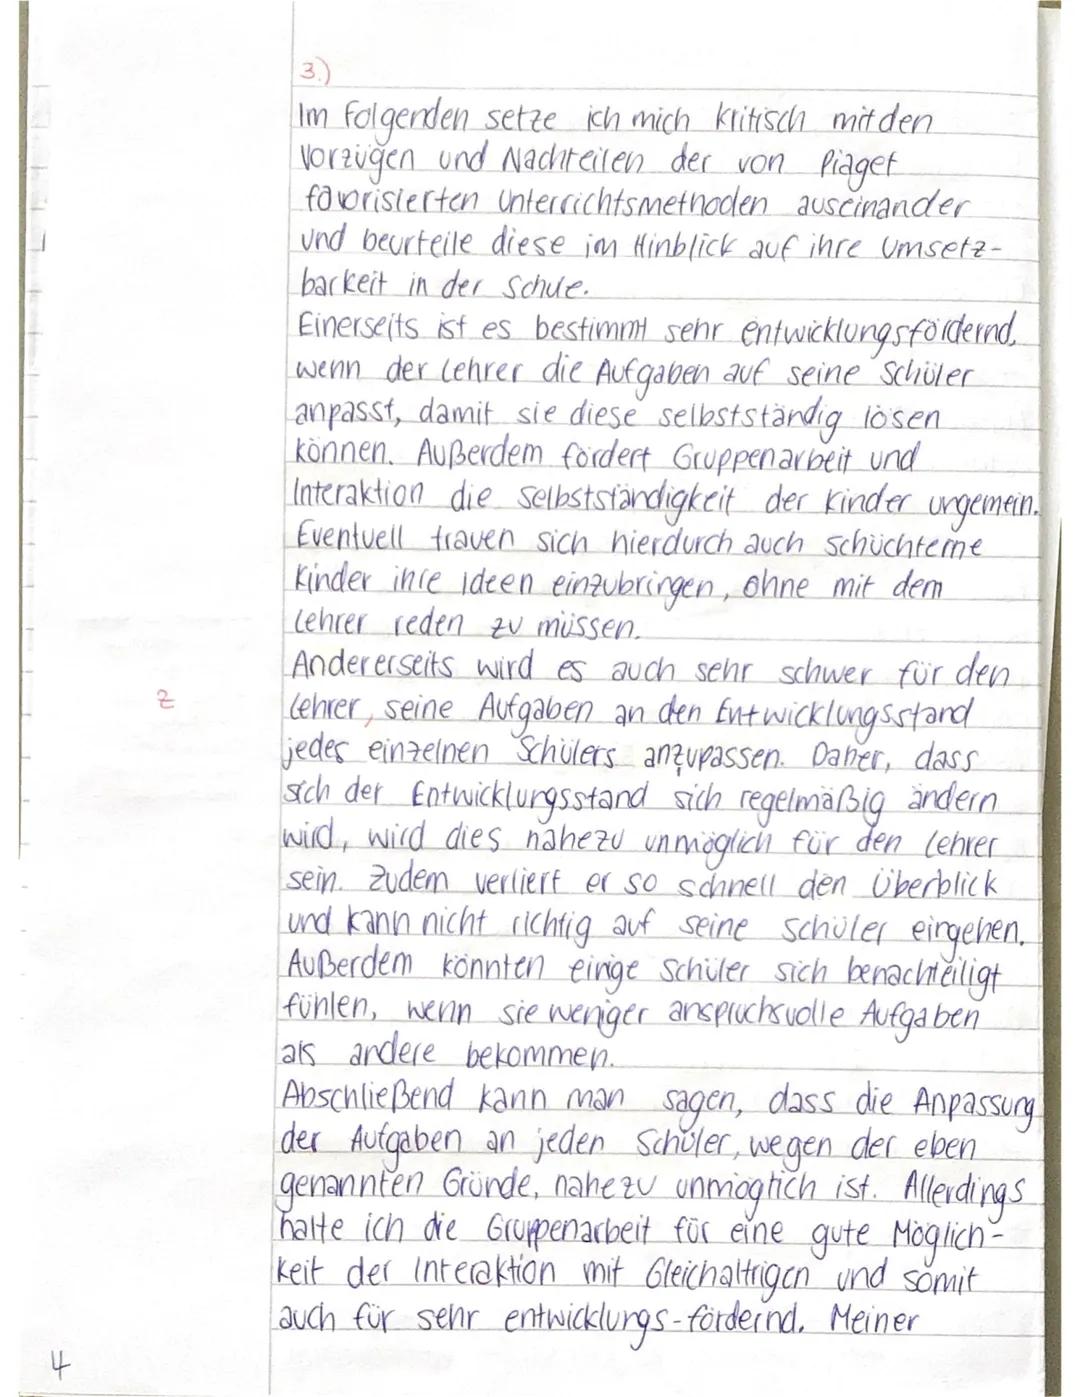 3.)
Im Folgenden setze ich mich kritisch mit den
Vorzügen und Nachteilen der von Piaget
favorisierten Unterrichtsmethoden auseinander
und beurteile diese im Hinblick auf ihre Umsetz-
barkeit in der Schule.
Einerseits ist es bestimmt sehr entwicklungsfördernd,
wenn der Lehrer die Aufgaben auf seine Schüler
anpasst, damit sie diese selbstständig lösen
können. Außerdem fördert Gruppenarbeit und
Interaktion die Selbstständigkeit der Kinder ungemein.
Eventuell trauen sich hierdurch auch schüchterne
Kinder ihre Ideen einzubringen, ohne mit dem
Lehrer reden zu müssen.
Andererseits wird es auch sehr schwer für den
z Lehrer, seine Aufgaben an den Entwicklungsstand
jedes einzelnen Schülers anzupassen. Daher, dass
sich der Entwicklungsstand sich regelmäßig ändern
wird, wird dies nahezu unmöglich für den Lehrer
sein. Zudem verliert er so schnell den Überblick
und kann nicht richtig auf seine Schüler eingehen.
Außerdem könnten einige Schüler sich benachteiligt
fühlen, wenn sie weniger anspruchsvolle Aufgaben
als andere bekommen.
Abschließend kann man sagen, dass die Anpassung
der Aufgaben an jeden Schüler, wegen der eben
genannten Gründe, nahezu unmöglich ist. Allerdings
halte ich die Gruppenarbeit für eine gute Möglich-
keit der Interaktion mit Gleichaltrigen und somit
auch für sehr entwicklungs-fördernd. Meiner
4